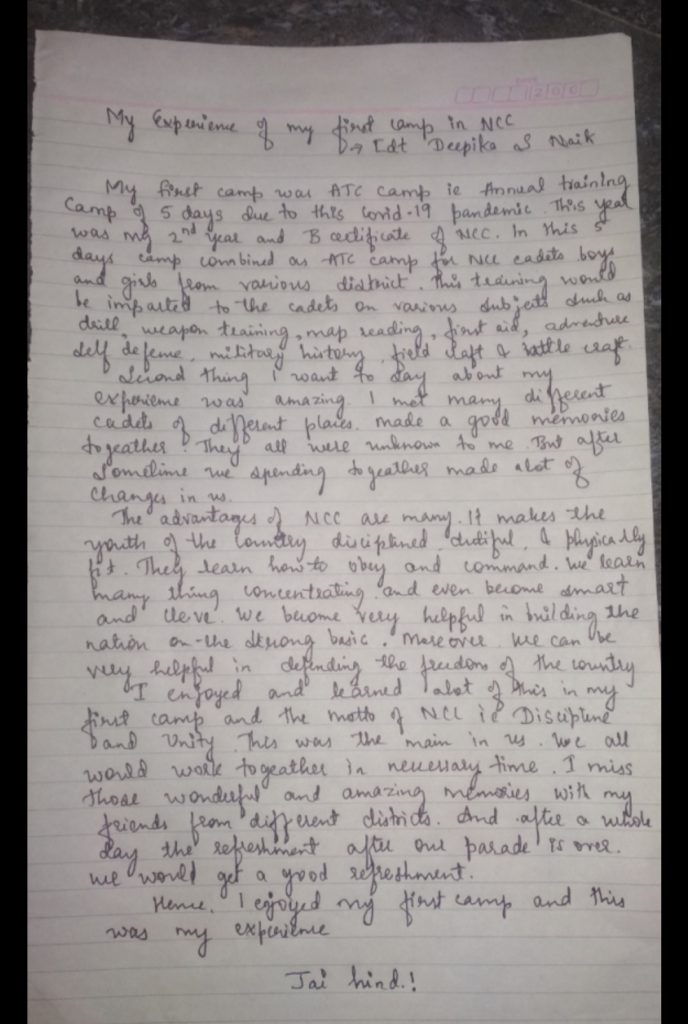 My Experience of my first camp in NCC
→ Cdt Deepika S Naik
My first camp was ATC camp ie Annual training
Camp of 5 days due to this Covid-19 pandemic. This year
was my 2nd year and B certificate of NCC. In this 5
days camp combined as ATC camp for NCC cadets boys
and girls from various district. This training would
be imparted to the cadets on various subjects such as
drill, weapon training, map reading, first aid, adventure
self defense, military history, field craft & battle craft.
Second thing I want to say about my
experience was amazing. I met many different
cadets of different places. made a good memories
togeather. They all were unknown to me. But after
sometime we spending togeather made alot of
changes in us.
The advantages of NCC are many. It makes the
youth of the country disciplined, dutiful, & physically
fit. They learn how to obey and command. We learn
many thing concentrating and even become smart
and cleve. We become very helpful in building the
nation on the strong basic. Moreover we can be
very helpful in defending the freedom of the country
I enjoyed and learned alot of this in my
first camp and the motto of NCC ie Discipline
and Unity. This was the main in us. We all
would work togeather in necessary time. I miss
those wonderful and amazing memories with my
friends from different districts. And after a whole
day the refreshment after our parade is over.
we would get a good refreshment.
Hence, I ejoyed my first camp and this
was my experience
Jai hind.!